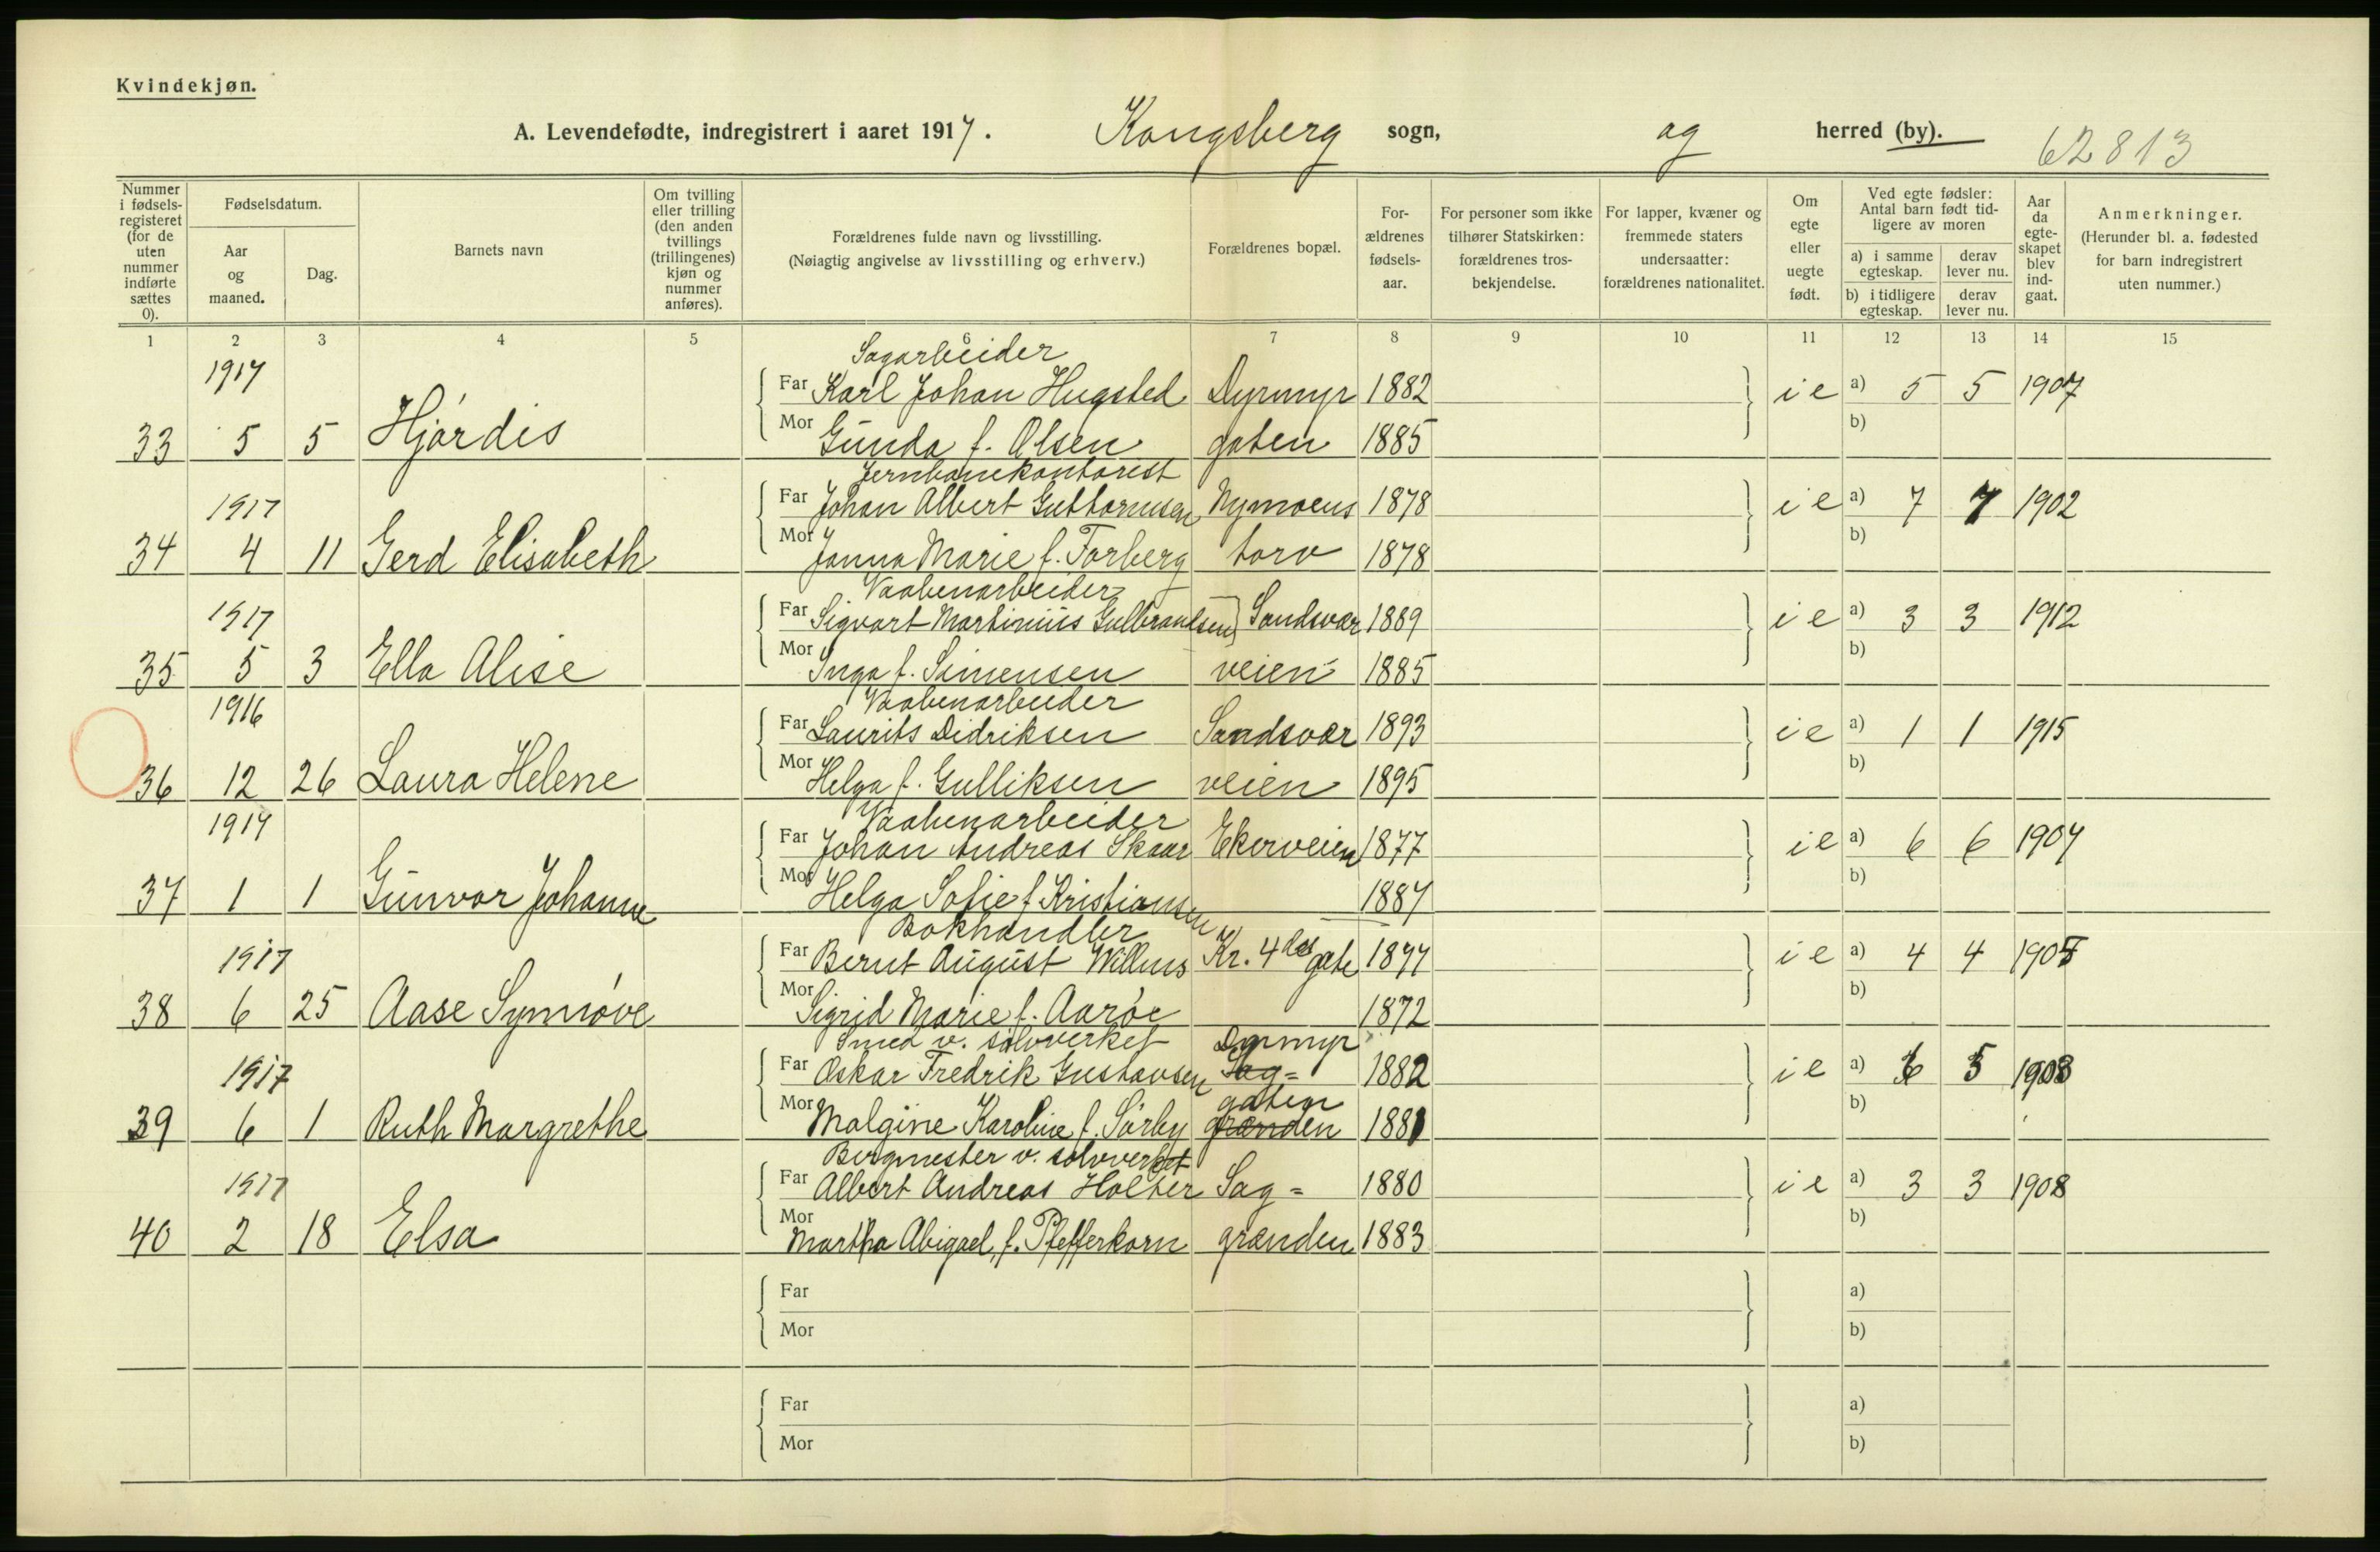 Kvindekjøn.
A. Levendefødte, indregistrert i aaret 1917. Kongsberg sogn, og herred (by). 62813
Nummer i fødsels-registeret (for de uten nummer indførte sættes 0).
Fødselsdatum.
Aar og maaned.
Dag.
Barnets navn
Om tvilling eller trilling (den anden tvillings (trillingenes) kjøn og nummer anføres).
Forældrenes fulde navn og livsstilling.
(Nøiagtig angivelse av livsstilling og erhverv.)
Forældrenes bopæl.
For-ældrenes fødsels-aar.
For personer som ikke tilhører Statskirken: forældrenes tros-bekjendelse.
For lapper, kvæner og fremmede staters undersaatter: forældrenes nationalitet.
Om egte eller uegte født.
Ved egte fødsler: Antal barn født tid-ligere av moren
a) i samme egteskap.
derav lever nu.
b) i tidligere egteskap.
derav lever nu.
Aar da egte-skapet blev ind-gaat.
Anmerkninger.
(Herunder bl. a. fødested for barn indregistrert uten nummer.)
1 2 3 4 5 6 7 8 9 10 11 12 13 14 15
1917 Sagarbeider
Far Karl Johan Hugsted Dyrmyr 1882 ie a) 5 5 1907
33 5 5 Hjórdis Mor Gunda f. Olsen gaten 1885 b)
Jernbanekontorist
1917 Far Johan Albert Guttormsen Nymoens 1878 ie a) 7 7 1902
34 4 11 Gerd Elisabeth Mor Janna Marie f. Forberg torv 1878 b)
Vaabenarbeider
1917 Far Sigvart Martinius Gulbrandsen Sandsvær 1889 ie a) 3 3 1912
35 5 3 Ella Alise Mor Inga f. Simensen veien 1885 b)
1916 Vaabenarbeider
Far Laurits Didriksen Sandsvær 1893 ie a) 1 1 1915
36 12 26 Laura Helene Mor Helga f. Gulliksen veien 1895 b)
1917 Vaabenarbeider
Far Johan Andreas Skaar Ekerveien 1877 ie a) 6 6 1907
37 1 1 Gunvor Johanne Mor Helga Sofie f Kristiansen 1887 b)
Bokhandler
1917 Far Bernt August Willms Kr. 4des gate 1877 ie a) 4 4 1905
38 6 25 Aase Synnóve Mor Sigrid Marie f. Aaróe 1872 b)
Smed v. sólvverket Dyrmyr
1917 Far Oskar Fredrik Gustavsen Sag= 1882 ie a) 6 5 1908
gaten
39 6 1 Ruth Margrethe Mor Malgine Karoline f. Sórby grænden 1881 b)
Bergmester v. sólvverket
1917 Far Albert Andreas Holter Sag= 1880 ie a) 3 3 1908
40 2 18 Elsa Mor Martha Abigael, f. Pfefferkorn grænden 1883 b)
Far a)
Mor b)
Far a)
Mor b)